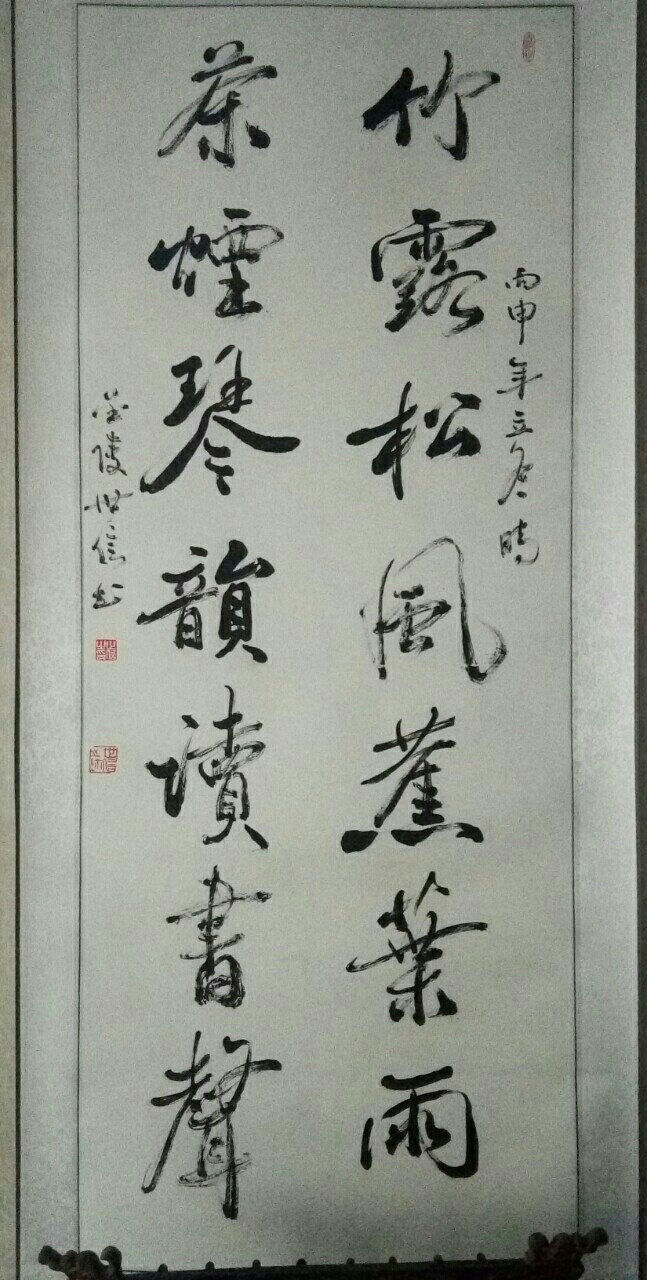 丙申年立冬時
竹露松風蕉葉雨
茶煙琴韻讀書聲
金陵世信书